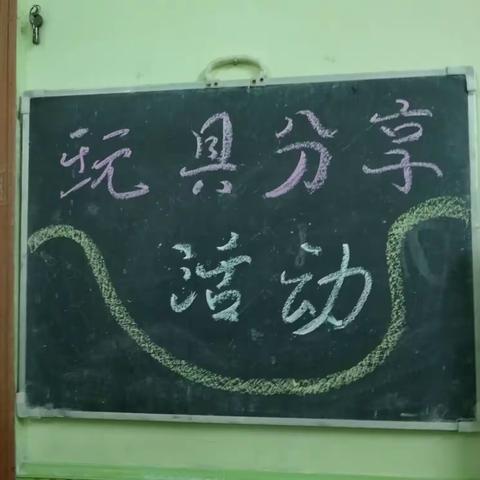 玩具分享
活动